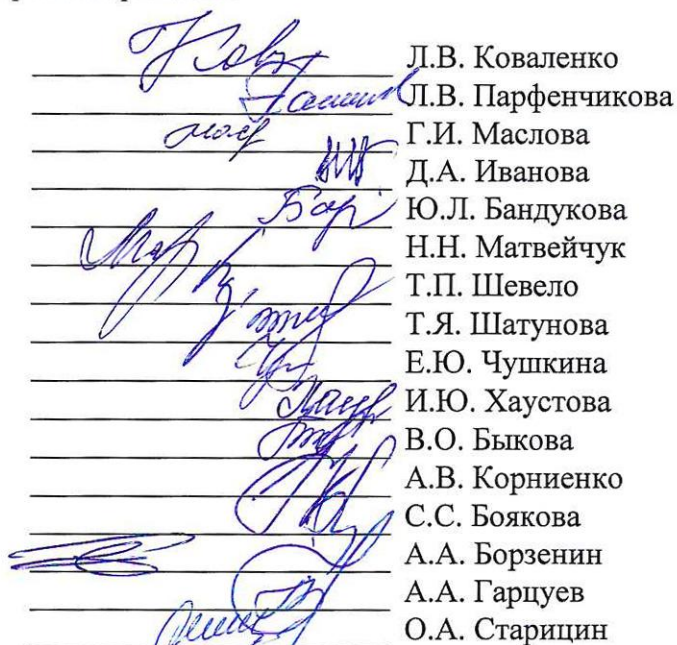 Л.В. Коваленко
Л.В. Парфенчикова
Г.И. Маслова
Д.А. Иванова
Ю.Л. Бандукова
Н.Н. Матвейчук
Т.П. Шевело
Т.Я. Шатунова
Е.Ю. Чушкина
И.Ю. Хаустова
В.О. Быкова
А.В. Корниенко
С.С. Боякова
А.А. Борзенин
А.А. Гарцуев
О.А. Старицин